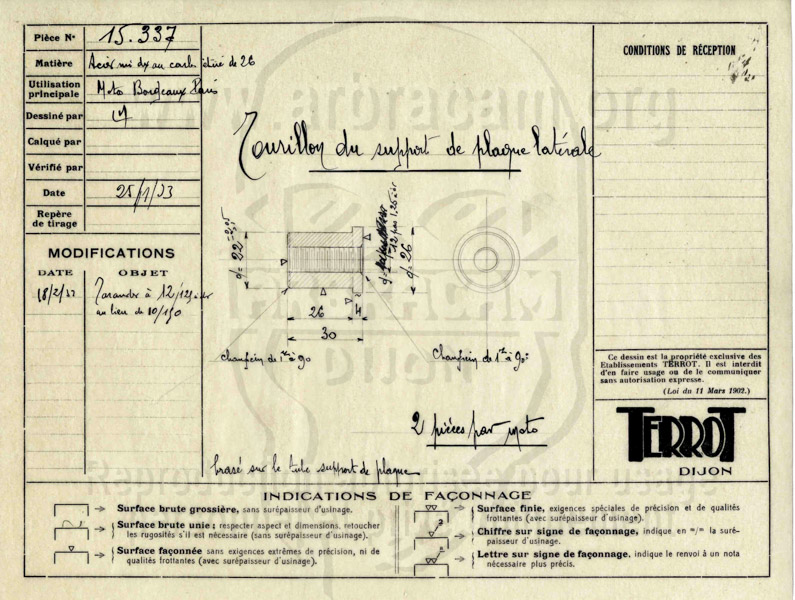 Pièce N° 15.337
Matière Acier mi dx au carb. étiré de 26
Utilisation principale Moto Bordeaux Paris
Dessiné par
Calqué par
Vérifié par
Date 25/1/33
Repère de tirage
MODIFICATIONS
DATE OBJET
18/2/33 Tarauder à 12/125
au lieu de 10/150
CONDITIONS DE RÉCEPTION
www.arbracam.org
Tourillon du support de plaque latérale
d=22
d=12 pas 1,25
d=26
26 4
30
Chanfrein de 1 à 90
Chanfrein de 1 à 90°
2 pièces par moto
brasé sur le tube support de plaque
Ce dessin est la propriété exclusive des
Etablissements TERROT. Il est interdit
d'en faire usage ou de le communiquer
sans autorisation expresse.
(Loi du 11 Mars 1902.)
TERROT
DIJON
INDICATIONS DE FAÇONNAGE
Surface brute grossière, sans surépaisseur d'usinage.
Surface brute unie: respecter aspect et dimensions, retoucher
les rugosités s'il est nécessaire (sans surépaisseur d'usinage).
Surface façonnée sans exigences extrêmes de précision, ni de
qualités frottantes (avec surépaisseur d'usinage).
Surface finie, exigences spéciales de précision et de qualités
frottantes (avec surépaisseur d'usinage).
Chiffre sur signe de façonnage, indique en m/m la suré-
paisseur d'usinage.
Lettre sur signe de façonnage, indique le renvoi à un nota
nécessaire plus précis.